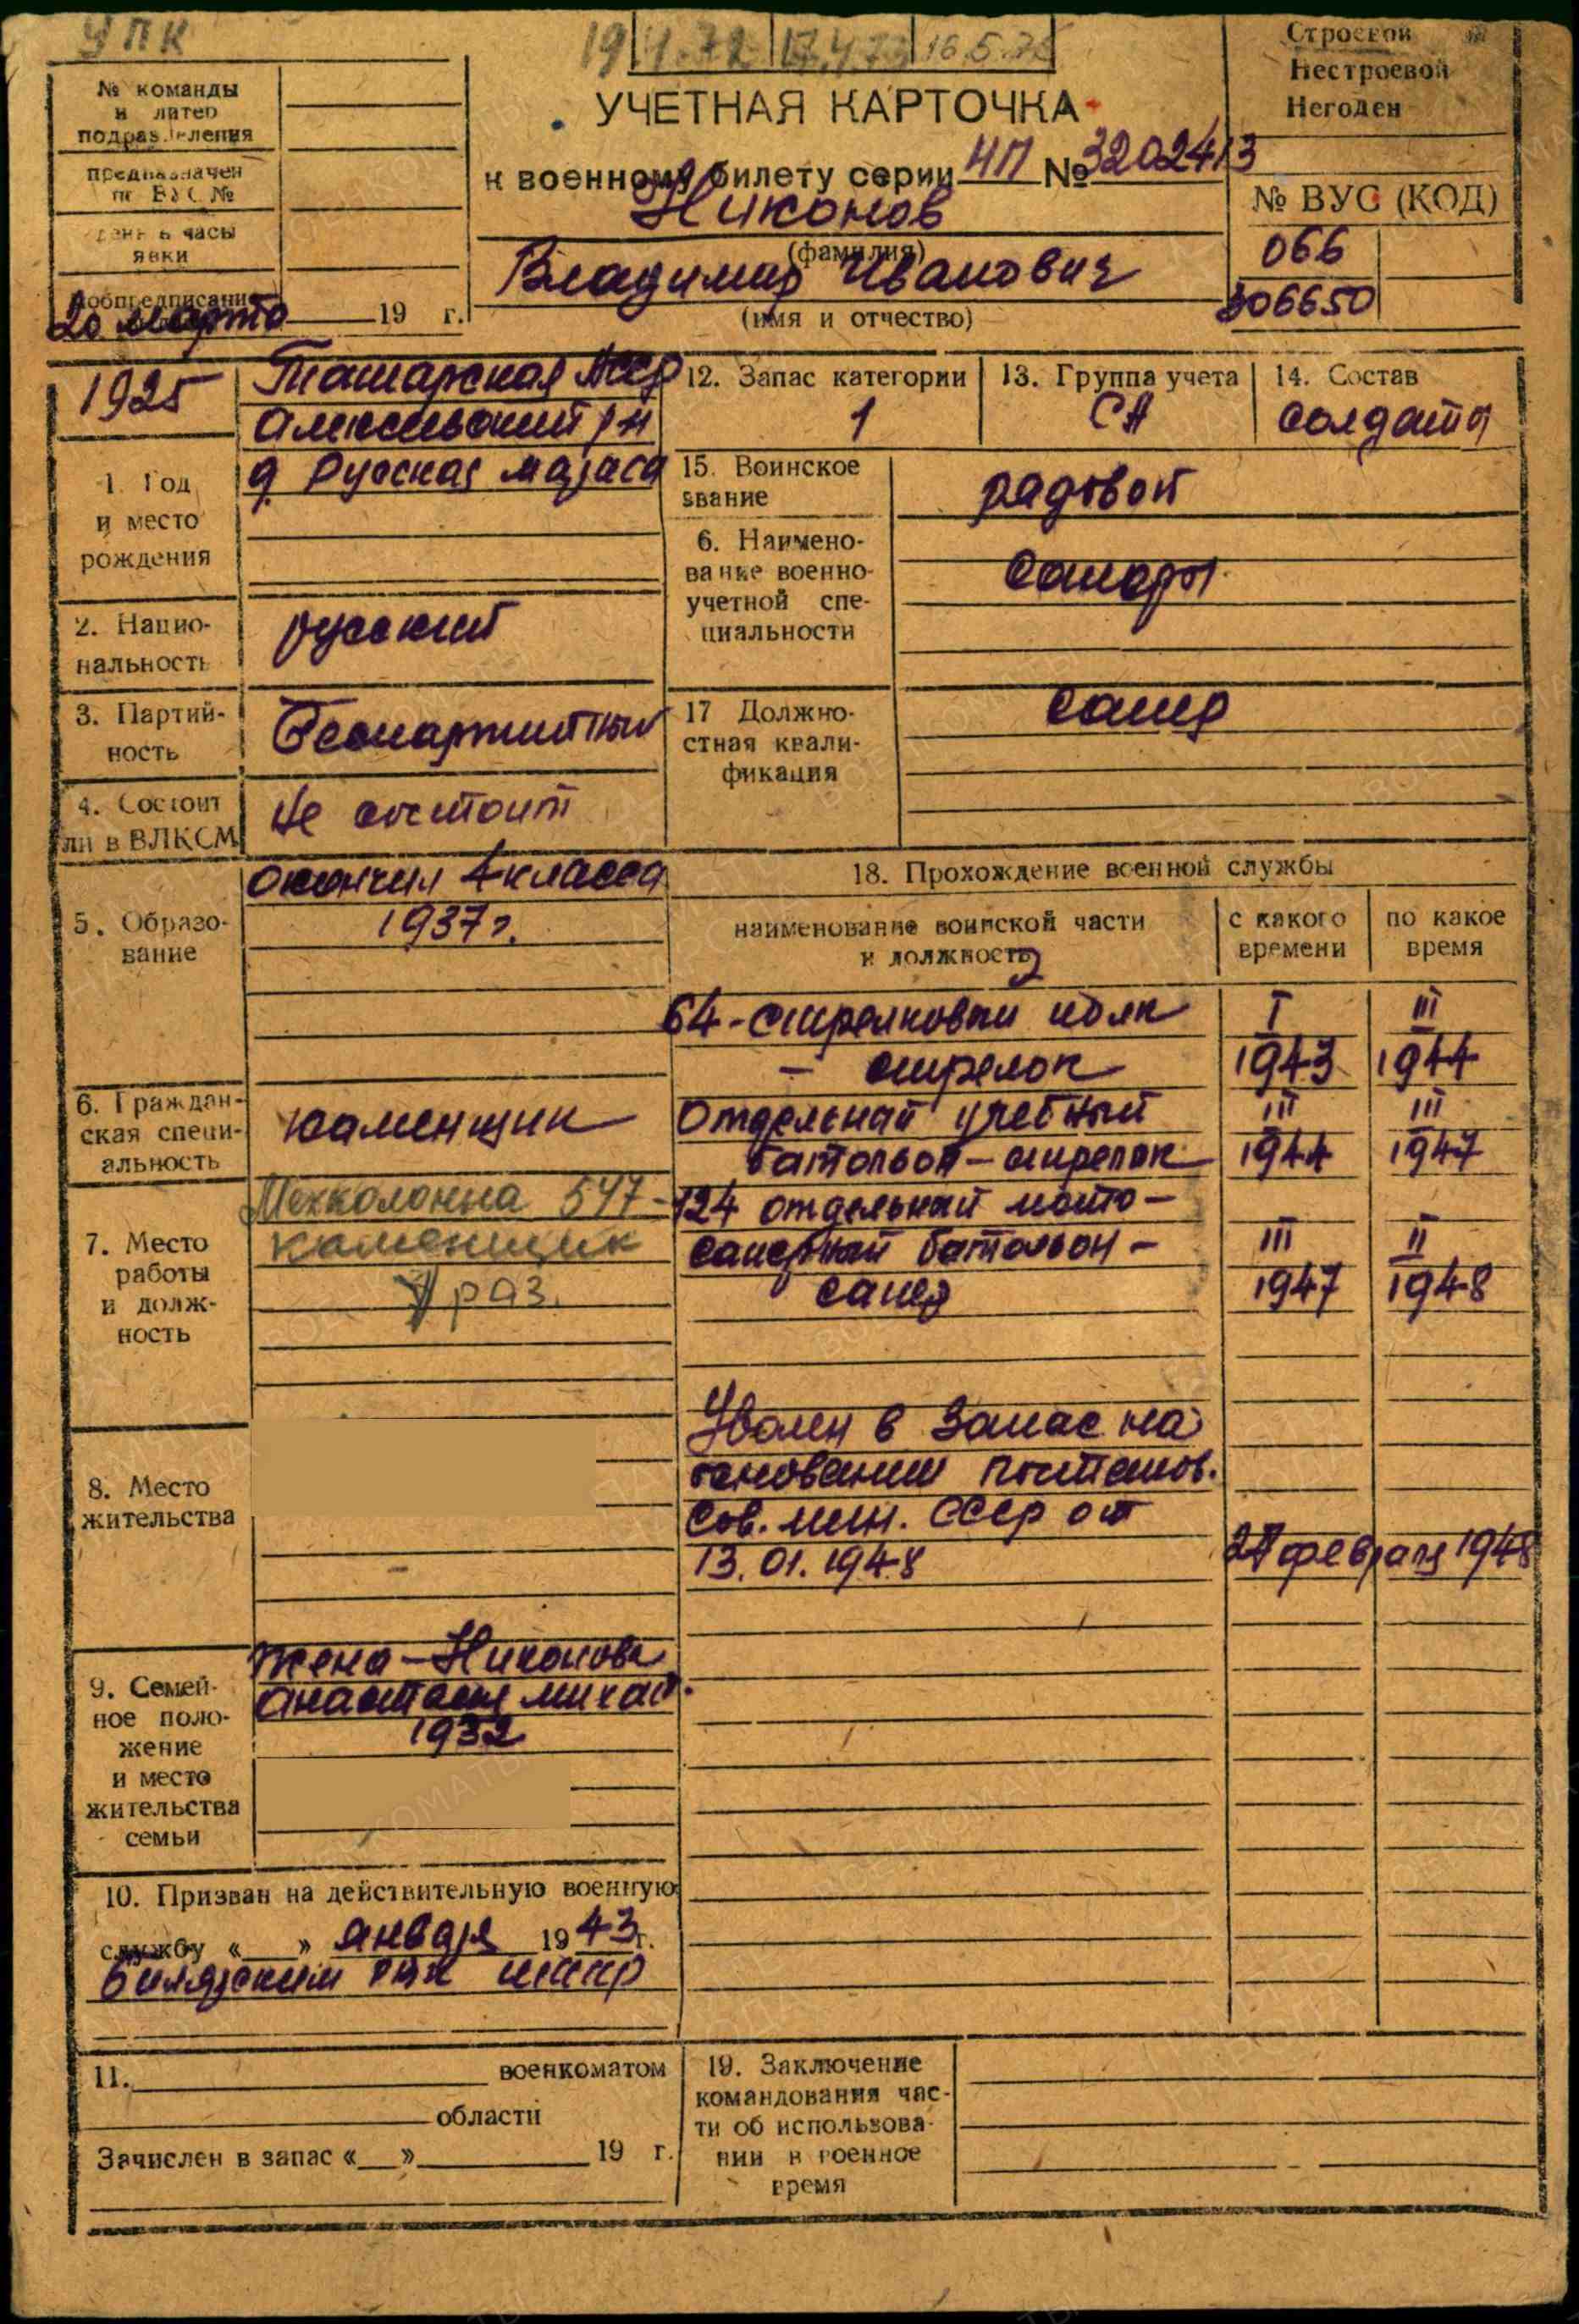 УПК
19.4.72 17.4.73 16.5.75
Строевой
Нестроевой
Негоден
№ команды
и литер
подразделения
предназначен
по ВУС №
день и часы
явки
моб предписание
20 марта 19 г.
УЧЕТНАЯ КАРТОЧКА
к военному билету серии НП № 3202413
Никонов
(фамилия)
Владимир Иванович
(имя и отчество)
№ ВУС (КОД)
066
106650
1925
Татарская АССР
Алексеевский р н
д. Русская
1. Год
и место
рождения
12. Запас категории
1
13. Группа учета
СА
14. Состав
солдаты
15. Воинское
звание
рядовой
6. Наимено-
вание военно-
учетной спе-
циальности
Саперы
2. Нацио-
нальность
русский
3. Партий-
ность
Беспартийный
17 Должно-
стная квали-
фикация
Сапер
4. Состоит
ли в ВЛКСМ
Не состоит
5. Образо-
вание
окончил 4 класса
1937 г.
18. Прохождение военной службы
наименование воинской части
и должность
с какого
времени
по какое
время
64-стрелковый полк
- стрелок
I
1943
III
1944
Отдельный учебный
батальон - стрелок
III
1944
III
1947
124 отдельный мото-
саперный батальон -
сапер
III
1947
II
1948
6. Граждан-
ская специ-
альность
каменщик
7. Место
работы
и долж-
ность
Мехколонна 547-
каменщик
раз.
Уволен в запас на
основании постанов.
Сов. мин. СССР от
13.01.1948
27 февраля 1948
8. Место
жительства
9. Семей-
ное поло-
жение
и место
жительства
семьи
жена - Никонова
Анастасия Михай.
1932
10. Призван на действительную военную
службу «   » января 1943 г.
Билярским РВК ТАССР
11. военкоматом
области
Зачислен в запас «   » 19 г.
19. Заключение
командования час-
ти об использова-
нии в военное
время